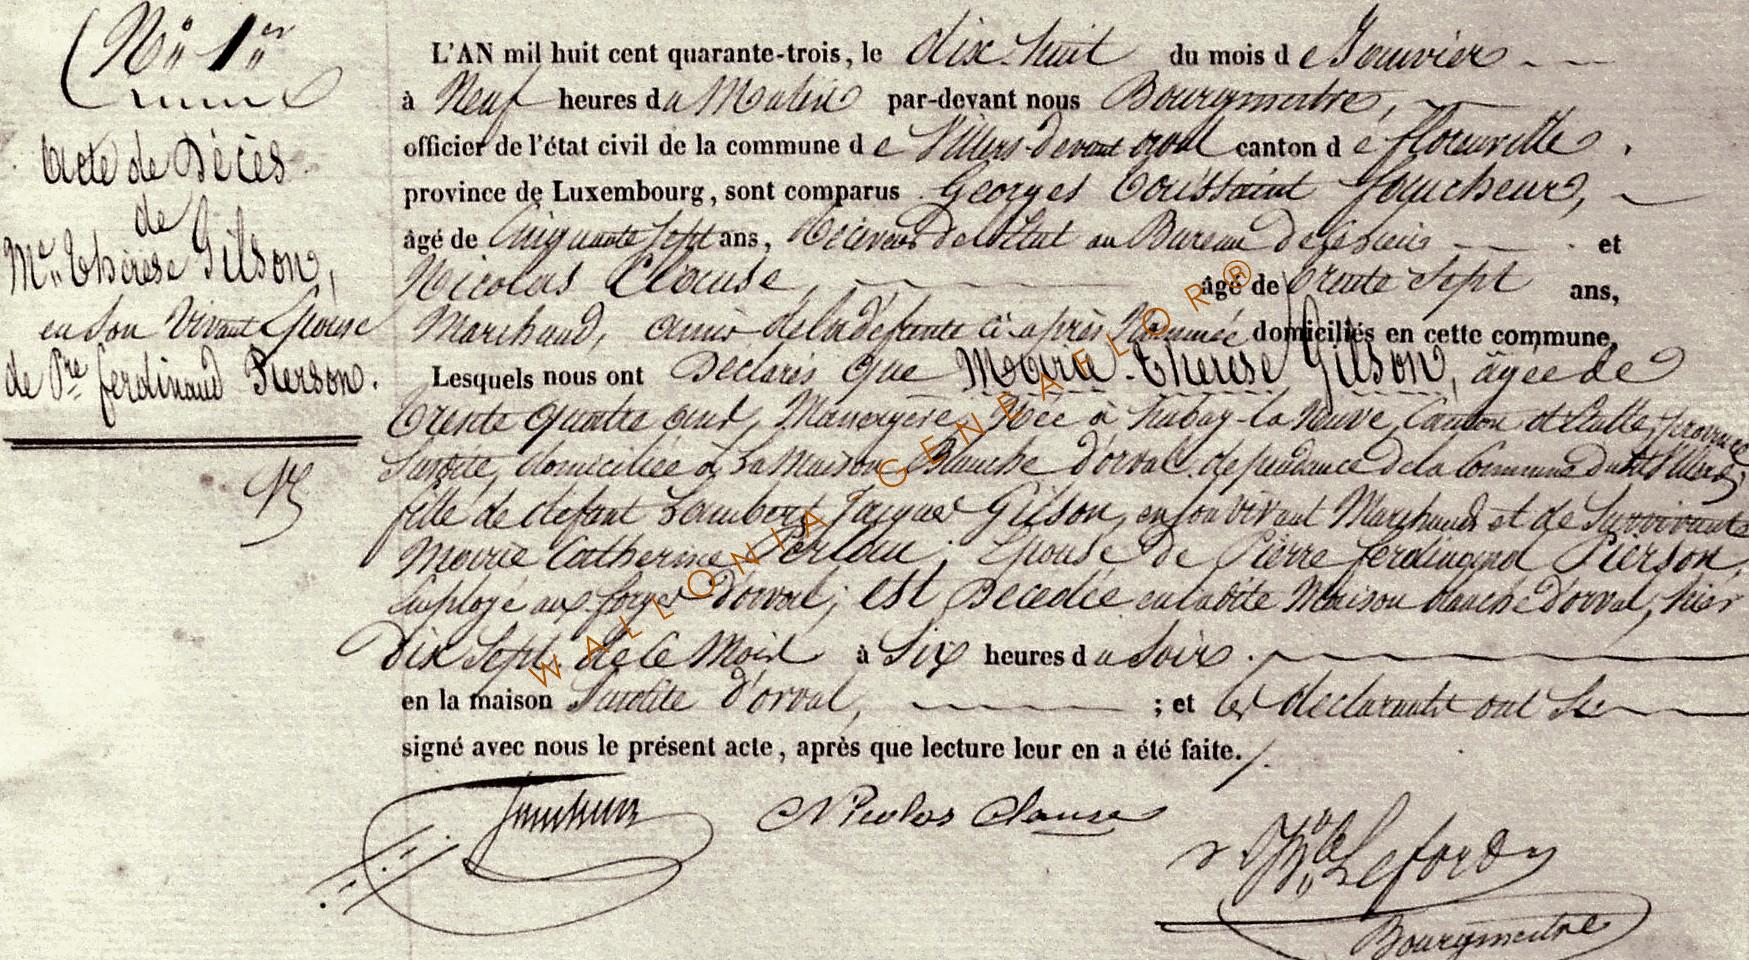 N° 1er
Acte de Décès
de
Me. Thérèse Gilson,
en son vivant Epouse
de Pre ferdinand Pierson.
L'AN mil huit cent quarante-trois, le dix-huit du mois de Janvier
à Neuf heures du Matin par-devant nous Bourgmestre,
officier de l'état civil de la commune de Villers-devant orval canton de florenville.
province de Luxembourg, sont comparus Georges Toussaint Faucheur,
âgé de Cinquante sept ans, Receveur de l'état au Bureau de et
Nicolas Clause, âgé de trente sept ans,
Marchand, amis de la défunte ci-après Nommée domiciliés en cette commune,
Lesquels nous ont Déclarés que Marie-Thérèse Gilson, âgée de
trente quatre ans, Menagère, Née à habay-la Neuve, Canton d'Etalle, province
Susdite, domiciliée à La Maison Blanche d'orval, dépendance de la Commune dudit Villers,
fille de defunt Lambert Jacques Gilson, en son vivant Marchand et de Survivante
Marie Catherine ; Epouse de Pierre ferdinand Pierson,
Employé aux forges d'orval ; est Décédée en la dite Maison blanche d'orval, hier
Dix Sept de ce Mois à Six heures du Soir.
en la maison Susdite d'orval, ; et les declarants ont
signé avec nous le présent acte, après que lecture leur en a été faite./.
Faucheur Nicolas Clause
Bourgmestre
WALLONIA-GENEALOR®